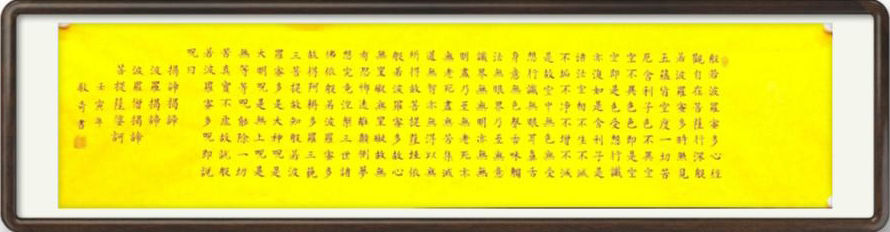 般若波羅蜜多心經
觀自在菩薩行深般
若波羅蜜多時照見
五蘊皆空度一切苦
厄舍利子色不異空
空不異色色即是空
空即是色受想行識
亦復如是舍利子是
諸法空相不生不滅
不垢不淨不增不減
是故空中無色無受
想行識無眼耳鼻舌
身意無色聲香味觸
法無眼界乃至無意
識界無無明亦無無
明盡乃至無老死亦
無老死盡無苦集滅
道無智亦無得以無
所得故菩提薩埵依
般若波羅蜜多故心
無罣礙無罣礙故無
有恐怖遠離顛倒夢
想究竟涅槃三世諸
佛依般若波羅蜜多
故得阿耨多羅三藐
三菩提故知般若波
羅蜜多是大神呪是
大明呪是無上呪是
無等等呪能除一切
苦真實不虛故說般
若波羅蜜多呪即說
呪曰
揭諦揭諦
波羅揭諦
波羅僧揭諦
菩提薩婆訶
壬寅年
敬奇書